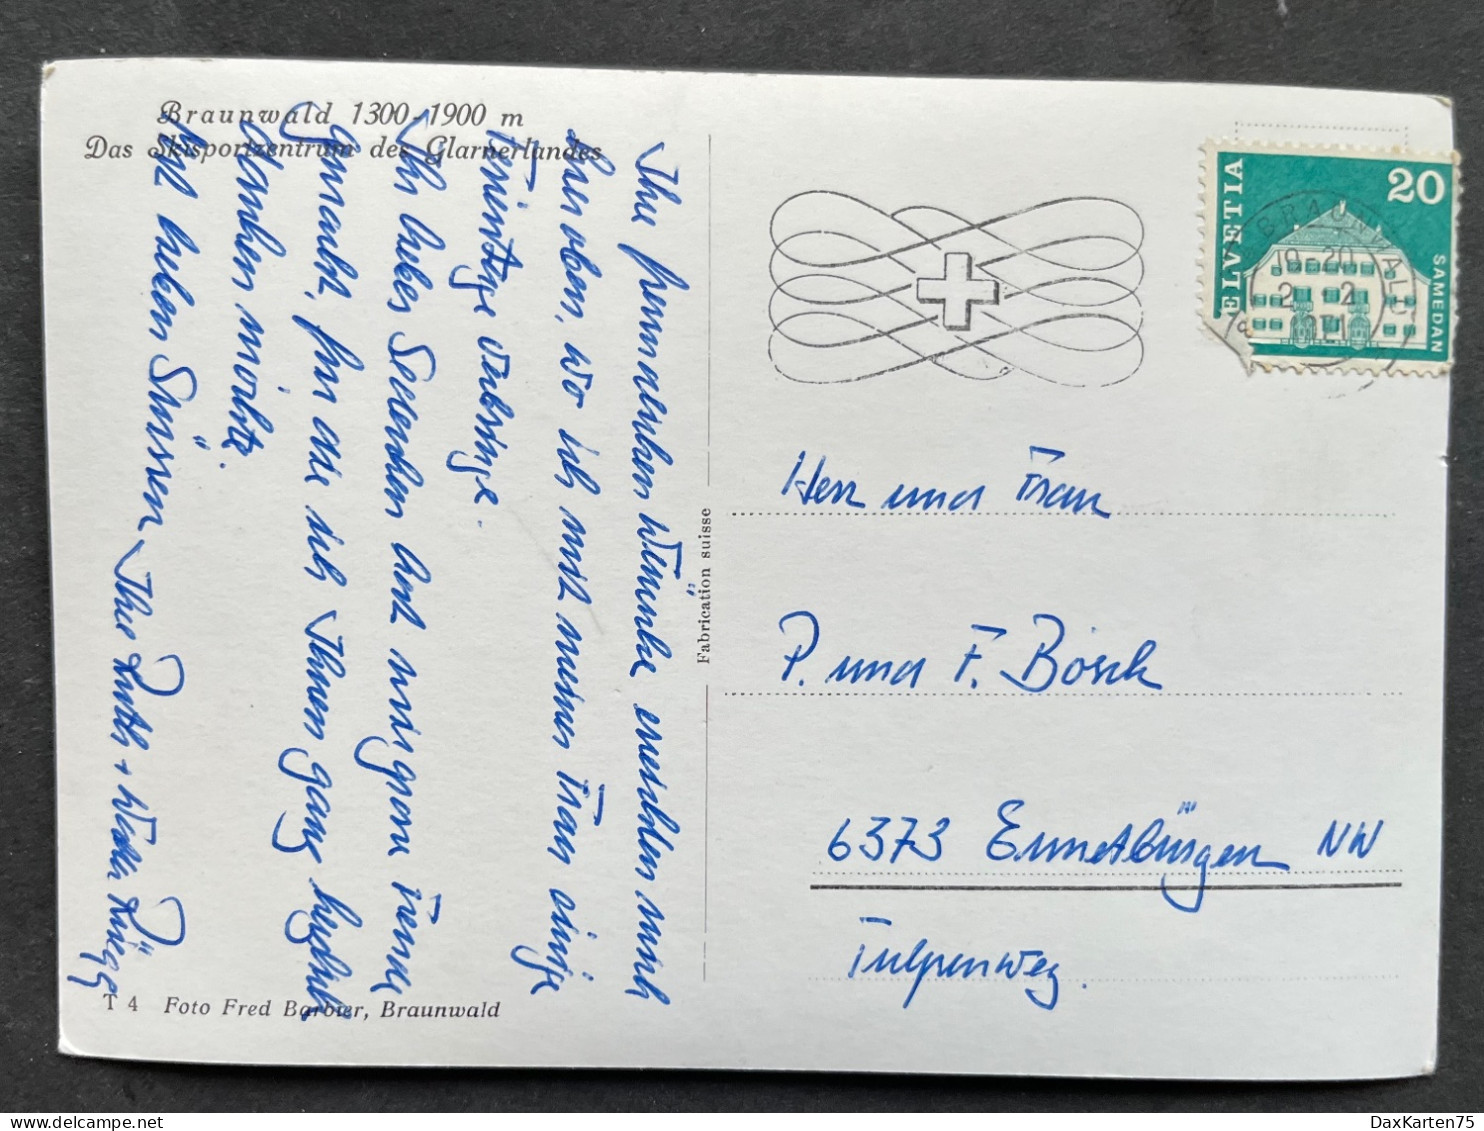 Braunwald 1300-1900 m
Das Skisportzentrum des Glarnerlandes
Ihre freundlichen Wünsche erreichten mich
hier oben, wo ich mit meiner Frau einige
Ferientage verbringe.
Ihr liebes hat uns grosse Freude
gemacht, für die ich Ihnen ganz herzlich
danken möchte.
Mit lieben Grüssen, Ihre Ruth + Walter Rüegg
T 4 Foto Fred Barbier, Braunwald
Fabrication suisse
HELVETIA
20
SAMEDAN
BRAUNWALD
19-20
2. 2
Herr und Frau
P. und F. Bösch
6373 Ennetbürgen NW
Tulpenweg
DaxKarten75